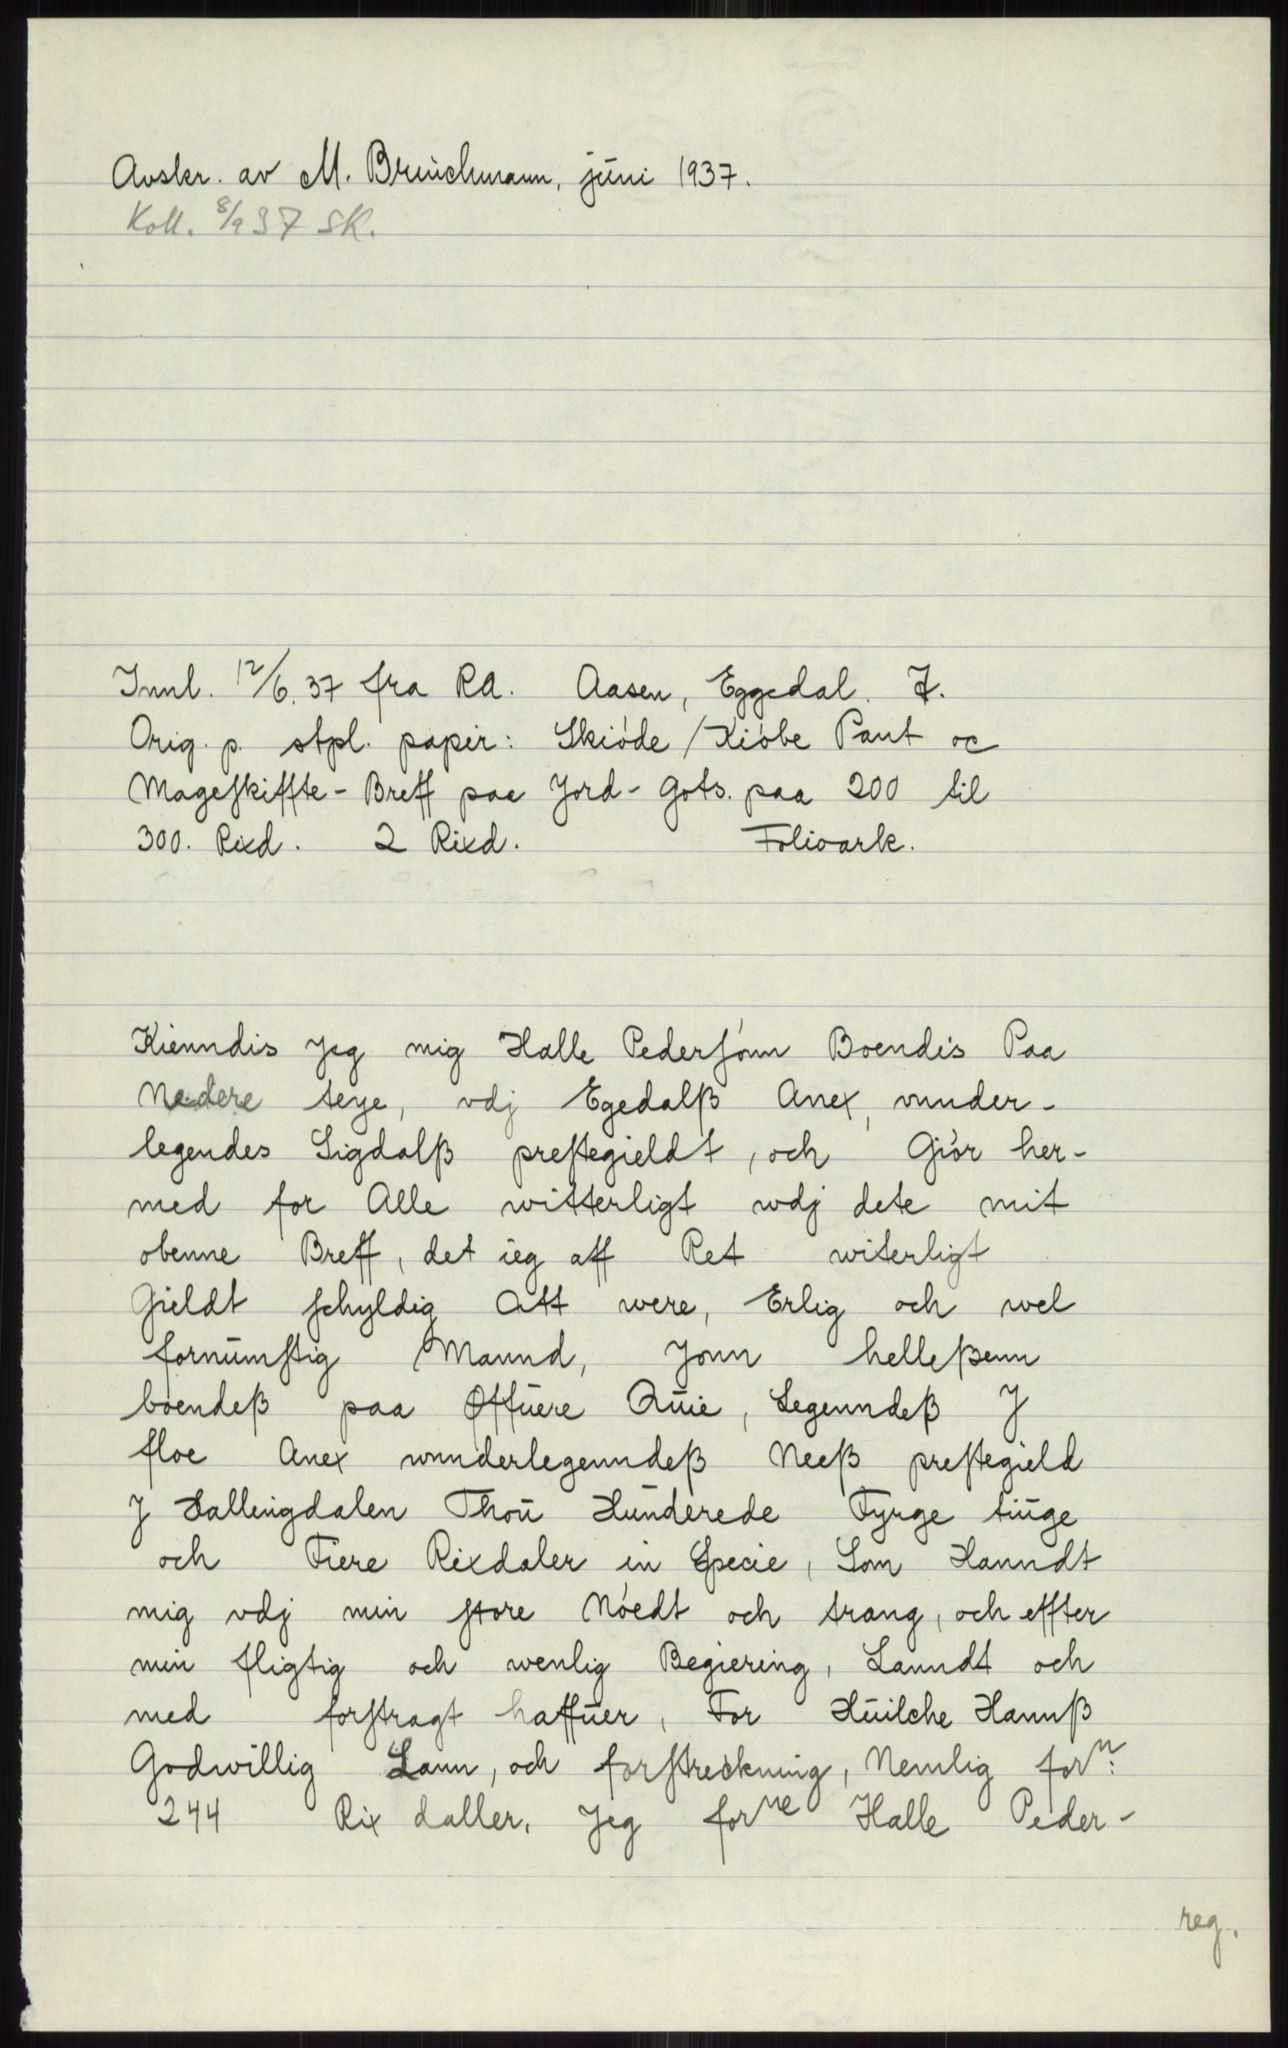 Avskr. av M. Bruichmann, juni 1937.
Koll. 8/9 37 SK.
Innl. 12/6. 37 fra RA. Aasen, Eggedal. 7.
Orig. p. stpl. papir: Skiøde/Kiøbe Pant oc
Mageskiffte-Breff paa Jord-Gots. paa 200 til
300. Rixd. 2 Rixd. Folioark.
Kienndis Jeg mig Halle Pedersønn Boendis Paa
Nedere teye, vdj Egedalß Anex, vnnder-
legendes Sigdalß prestegieldt, och Giør her-
med for Alle witterligt wdj dete mit
obenne Breff, det ieg aff Ret witerligt
Gieldt schyldig Att were, Erlig och wel
fornumstig Mannd, Jonn helleßenn
boendeß paa Øffuere Quie, Legenndeß J
floe Anex wnnderlegenndeß Neeß prestegield
J Hallingdalen Thou Hunderede Fyrge tiuge
och Fiere Rixdaler in Specie, Som Hanndt
mig vdj min store Nøedt och trang, och effter
min fligtig och wenlig Begiering, Lanndt och
med forstragt haffuer, For Huilche Hannß
Godwillig Lann, och forstreckning, Nemlig forn:
244 Rix daller, Jeg forne Halle Peder-
reg.